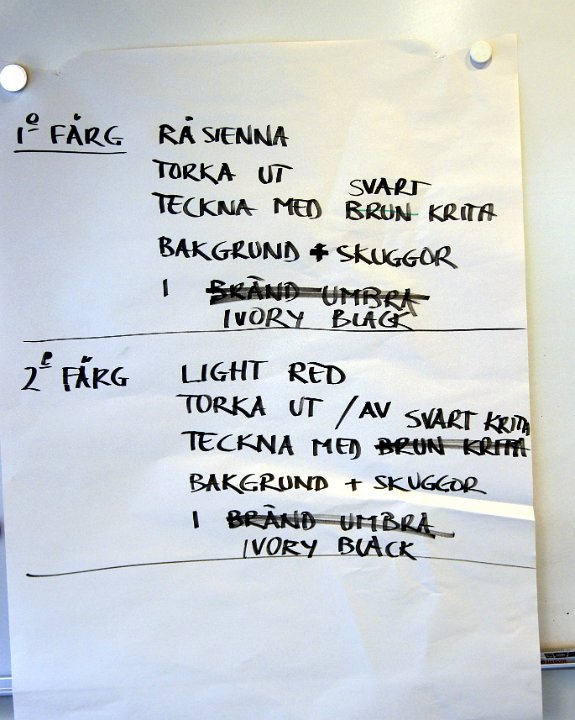 1º FÄRG RÅ SIENNA
TORKA UT
SVART
TECKNA MED BRUN KRITA
BAKGRUND + SKUGGOR
I BRÄND UMBRA
IVORY BLACK
2º FÄRG LIGHT RED
TORKA UT / AV SVART KRITA
TECKNA MED BRUN KRITA
BAKGRUND + SKUGGOR
I BRÄND UMBRA
IVORY BLACK